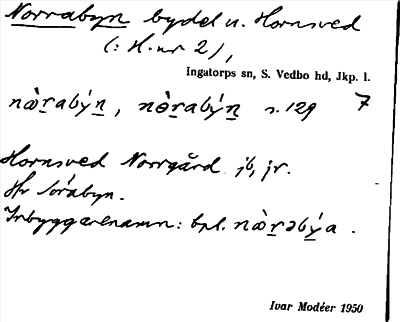 Norrabyn bydel u. Hornsved
(: H. nr 2),
Ingatorps sn, S. Vedbo hd, Jkp. l.
nœ̀rabýn, nɵ̀rabýn s. 129 7
Hornsved Norrgård jb, jr.
Hr Sörabyn.
Inbyggarenamn: bpl. nœ̀rəbýa.
Ivar Modéer 1950